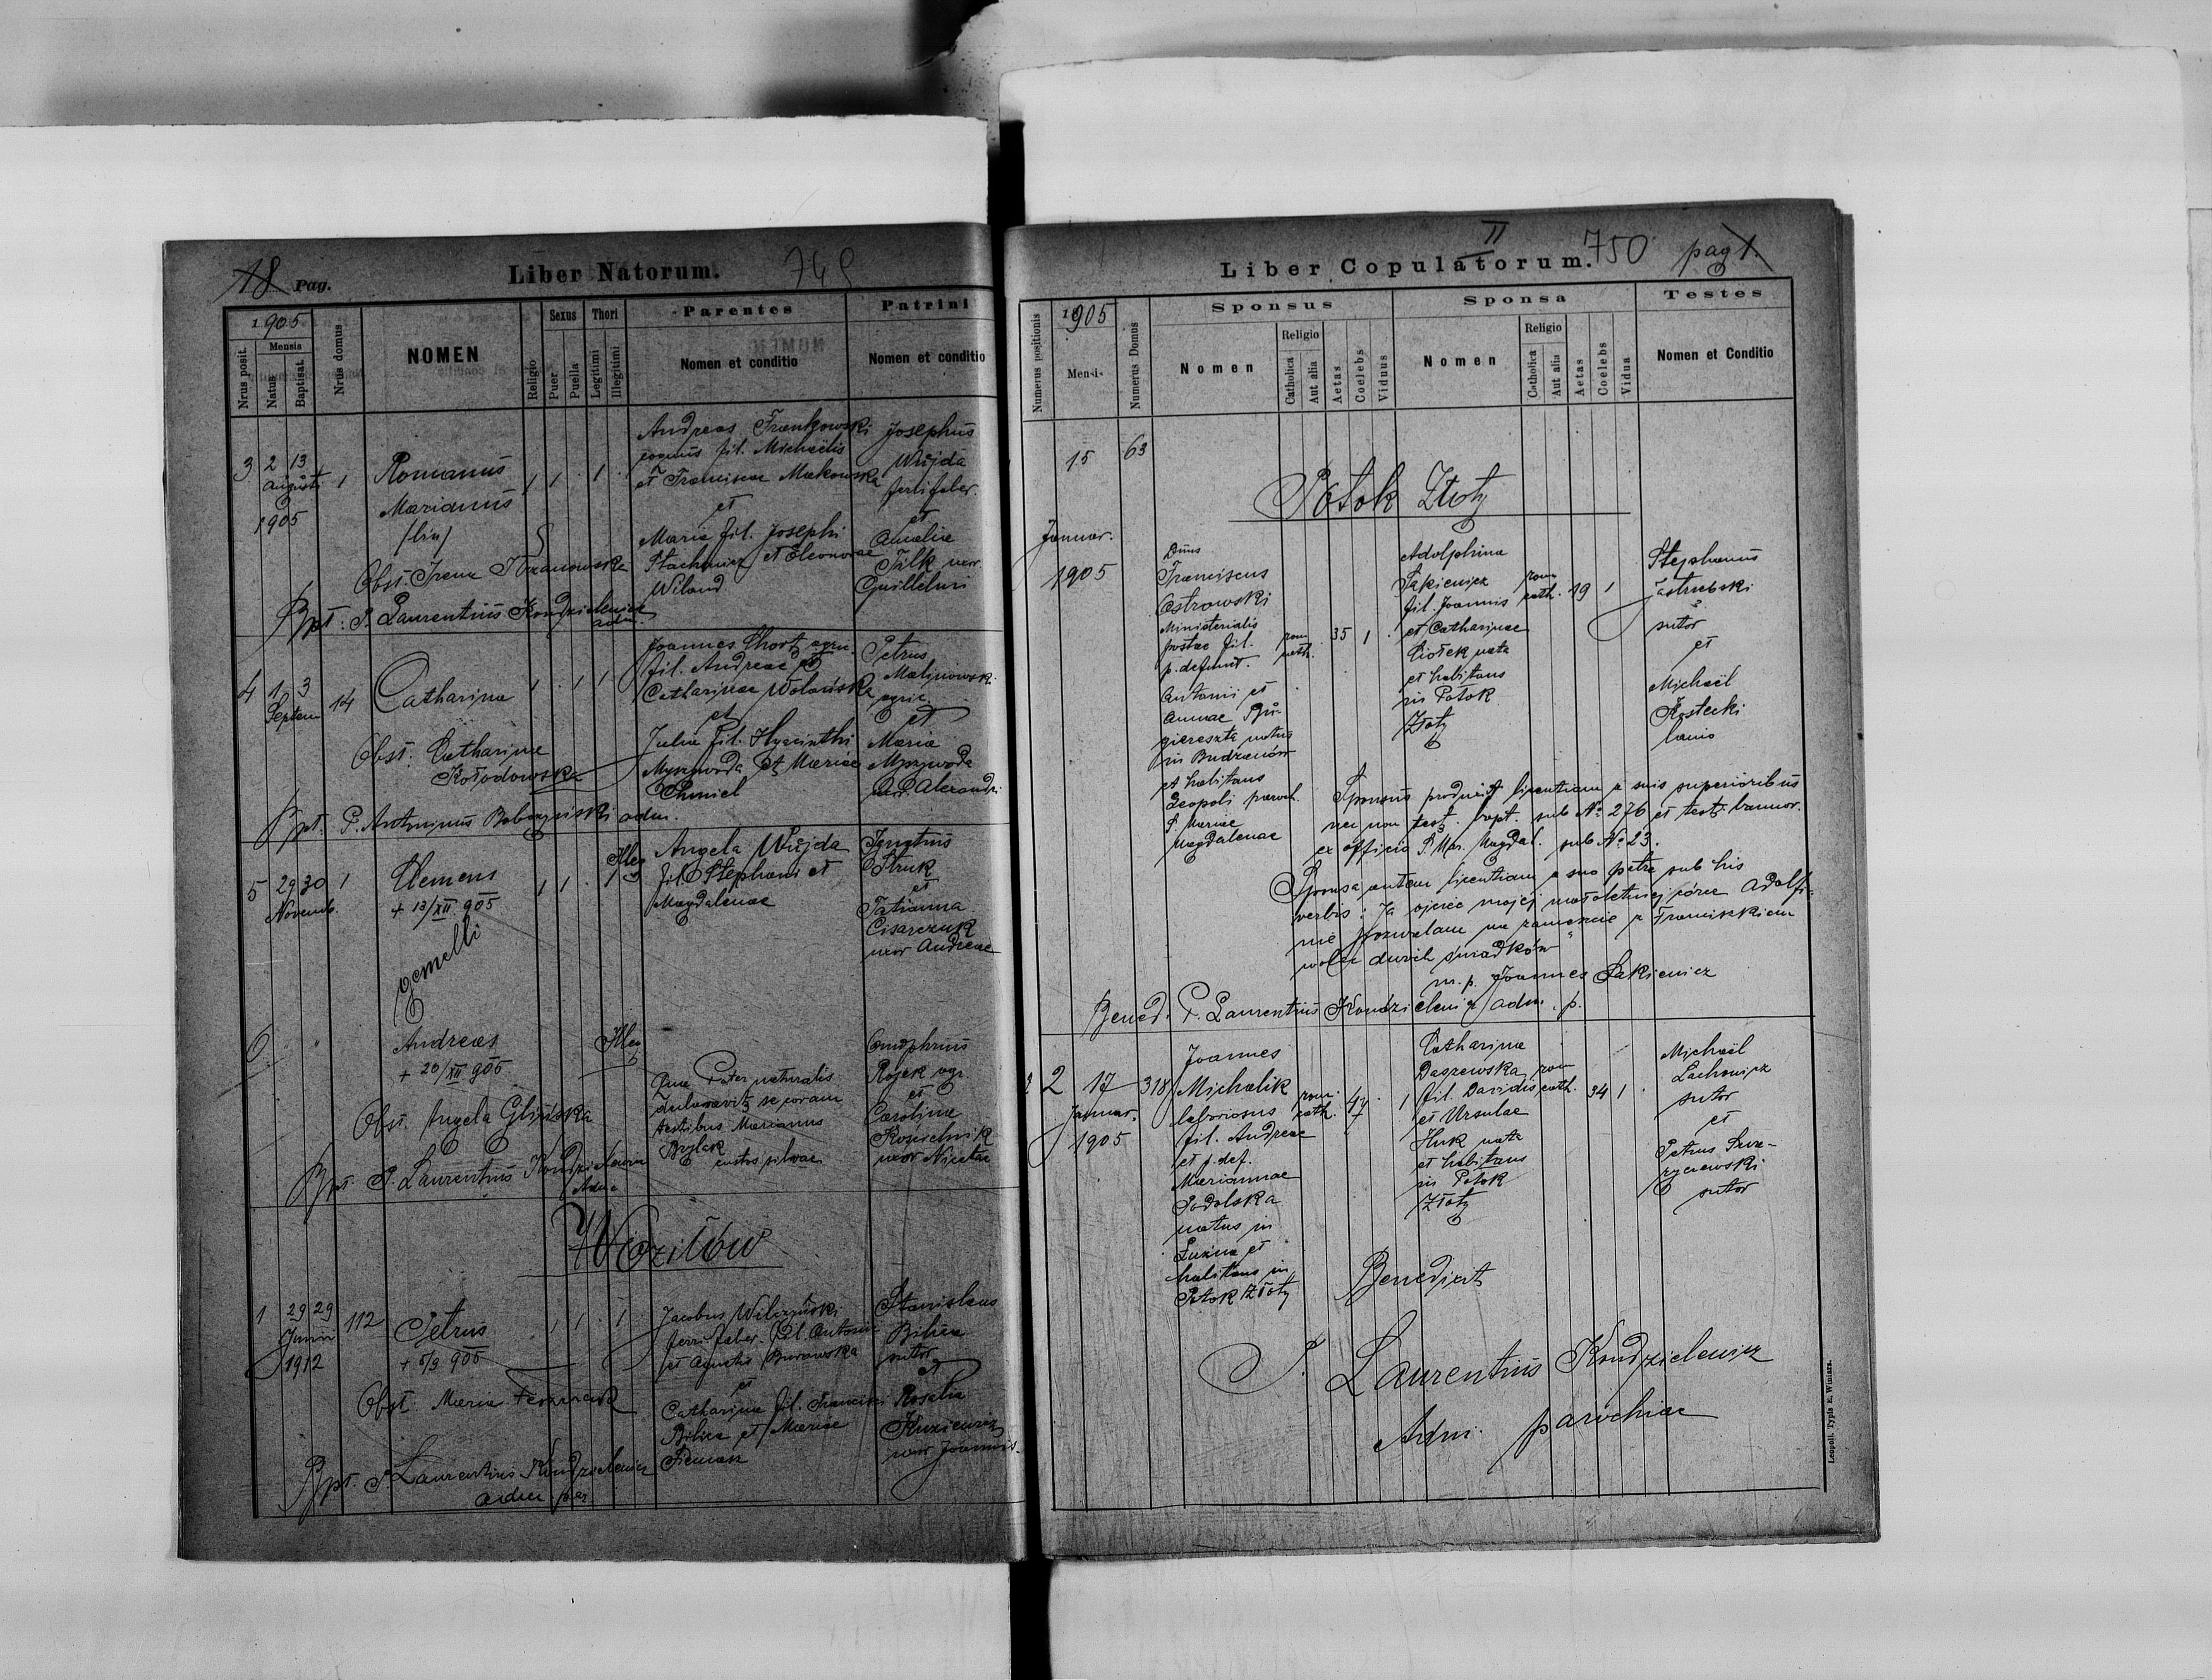 18 Pag.
Liber Natorum.
749
1905
Nrus posit.
Mensis
Natus
Baptisat.
Nrus domus
NOMEN
Religio
Sexus
Puer
Puella
Thori
Legitimi
Illegitimi
Parentes
Nomen et conditio
Patrini
Nomen et conditio
3
2 13
Augusti
1905
1
Romanus
Marianus
/bin/
1 1 1
Andreas Frankowski
fil. Michaelis
et Franciscae Makowska
et
Maria fil. Josephi
Stachiewicz et Eleonorae
Wiland
Josephus
Wujda
ferrifaber
et
Amalia
Filk uxor
Guillelmi
Obst. Irena
Bpt: P. Laurentius Kondzielewicz
adm.
4
1 3
Septem
14
Catharina
1 1 1
Joannes Chort agric.
fil. Andreae et
Catharinae Wolańska
et
Julia fil. Hyacinthi
Myszwoda et Mariae
Chmiel
Petrus
Malinowski
agric
et
Maria
uxor Alexandri
Obst: Catharina
Kołodowska
Bpt. P. Antoninus adm.
5
29 30
Novemb.
1
Clemens
+ 12/XII 905
gemelli
1 1
Illeg
Angela Wujda
fil. Stephani et
Magdalenae
Ignatius
Struk
et
Tatianna
Cisarczuk
uxor Andreae
6
Andreas
+ 20/XII 905
Illeg
Pater naturalis
se coram
testibus Marianus
custos silvae
Onuphrius
Rojek agr.
et
Carolina
uxor Nicetae
Obst. Angela Glińska
Bpt. P. Laurentius Kondzielewicz
Adm
Woziłów
1
29 29
Junii
1912
112
Petrus
+ 5/9 905
1 1 1
Jacobus Wilczyński
ferrifaber fil. Antonii
et Agnetis Burowska
et
Catharina fil. Francisci
Bilica et Mariae
Stanislaus
Bilica
sutor
et
Rosalia
Kuziewicz
uxor Joannis
Obst. Maria
Bpt. P. Laurentius Kondzielewicz
adm par
II
Liber Copulatorum.
750
pag 1.
Numerus positionis
1905
Mensis
Numerus Domus
Sponsus
Nomen
Religio
Catholica
Aut alia
Aetas
Coelebs
Viduus
Sponsa
Nomen
Religio
Catholica
Aut alia
Aetas
Coelebs
Vidua
Testes
Nomen et Conditio
Potok Złoty
15
Januar.
1905
63
Dnus
Franciscus
Ostrowski
Ministerialis
postae fil.
p. defunct.
Antonii et
Annae
natus
in Budzanów
et habitans
Leopoli paroch.
S. Mariae
Magdalenae
rom
cath.
35 1
Adolphina
Sakiewicz
fil. Joannis
et Catharinae
Ciołek nata
et habitans
in Potok
Złoty
rom
cath. 19 1
Stephanus
Jastrzebski
sutor
et
Michaël
Kostecki
lanio
Sponsus produxit licentiam a suis superioribus
nec non test. bapt. sub No 276 et test. bannor.
ex officio S. Mar. Magdal. sub No 23.
Sponsa autem licentiam a suo patre sub his
verbis: Ja ojciec mojej małoletniej córce Adolfi-
nie pozwalam na zamęście z Franciszkiem
wobec dwóch świadków"
m. p. Joannes Sakiewicz
Bened. P. Laurentius Kondzielewicz adm. p.
2
17
Januar.
1905
318
Joannes
Michalik
laboriosus
fil. Andreae
et p. def.
Mariannae
Podolska
natus in
Luzna et
habitans in
Potok Złoty
rom.
cath. 47 1
Catharina
Daszewska
fil. Davidis
et Ursulae
Huk nata
et habitans
in Potok
Złoty
rom
cath. 34 1
Michaël
Lachowicz
sutor
et
Petrus
sutor
Benedixit
P. Laurentius Kondzielewicz
Adm. parochiae
Leopoli. Typis E. Winiarz.